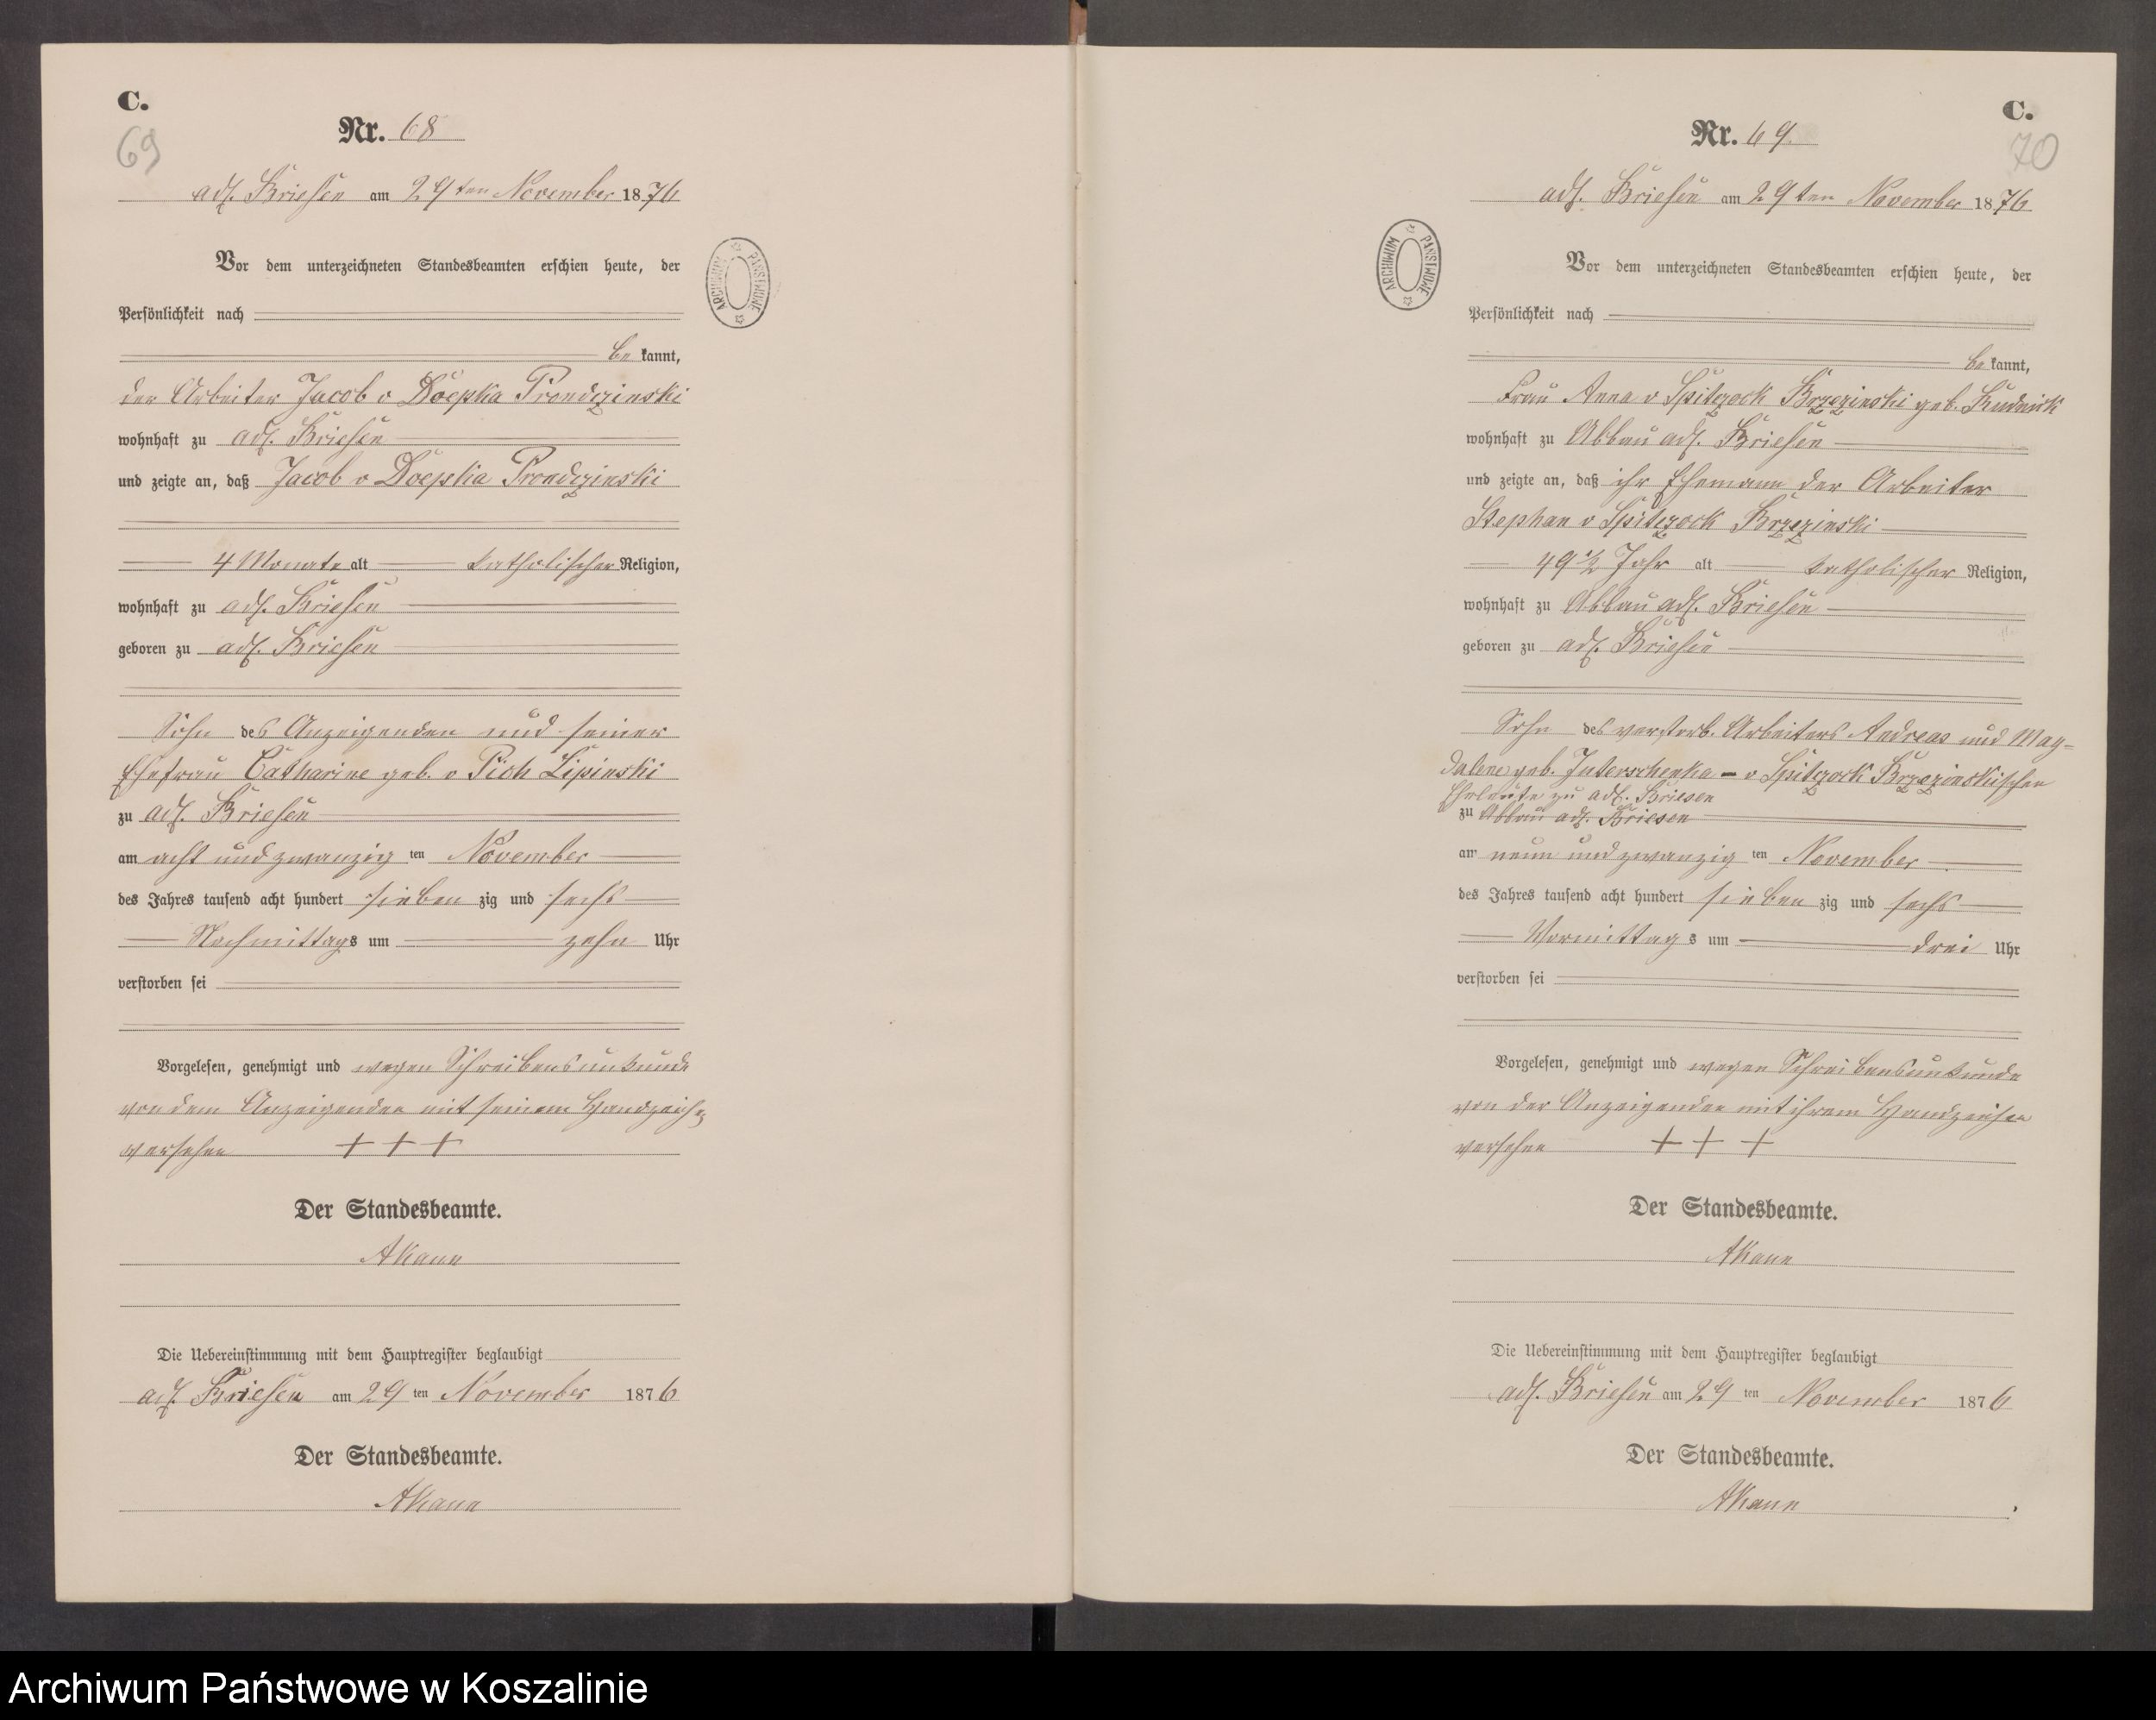 C.
69
Nr. 68
adl. Briesen am 29ten November 1876
Vor dem unterzeichneten Standesbeamten erschien heute, der
Persönlichkeit nach
be kannt,
der Arbeiter Jacob v Doepka Prondzinski
wohnhaft zu adl. Briesen
und zeigte an, daß Jacob v Doepka Prondzinski
4 Monate alt katholischer Religion,
wohnhaft zu adl. Briesen
geboren zu adl. Briesen
Sohn des Anzeigenden und seiner
Ehefrau Catharine geb. v Pich Lipinski
zu adl. Briesen
am acht und zwanzig ten November
des Jahres tausend acht hundert sieben zig und sechs
Nachmittags um zehn Uhr
verstorben sei
Vorgelesen, genehmigt und wegen Schreibensunkunde
von dem Anzeigenden mit seinem Handzeichen
versehen +++
Der Standesbeamte.
AKann
Die Uebereinstimmung mit dem Hauptregister beglaubigt
adl. Briesen am 29 ten November 1876
Der Standesbeamte.
AKann
ARCHIWUM PAŃSTWOWE
C.
70
Nr. 69.
adl. Briesen am 29ten November 1876
ARCHIWUM PAŃSTWOWE
Vor dem unterzeichneten Standesbeamten erschien heute, der
Persönlichkeit nach
be kannt,
Frau Anna v Spitczock Brzezinski geb. Rudnick
wohnhaft zu Abbau adl. Briesen
und zeigte an, daß ihr Ehemann der Arbeiter
Stephan v Spitczock Brzezinski
49 1/2 Jahr alt katholischer Religion,
wohnhaft zu Abbau adl. Briesen
geboren zu adl. Briesen
Sohn des verstorb. Arbeiters Andreas und Mag-
dalene geb. Juterschenka - v Spitczock Brzezinskischen
Eheleute zu adl. Briesen
zu Abbau adl. Briesen
am neun und zwanzig ten November
des Jahres tausend acht hundert sieben zig und sechs
Vormittags um drei Uhr
verstorben sei
Vorgelesen, genehmigt und wegen Schreibensunkunde
von der Anzeigenden mit ihrem Handzeichen
versehen +++
Der Standesbeamte.
AKann
Die Uebereinstimmung mit dem Hauptregister beglaubigt
adl. Briesen am 29 ten November 1876
Der Standesbeamte.
AKann
Archiwum Państwowe w Koszalinie